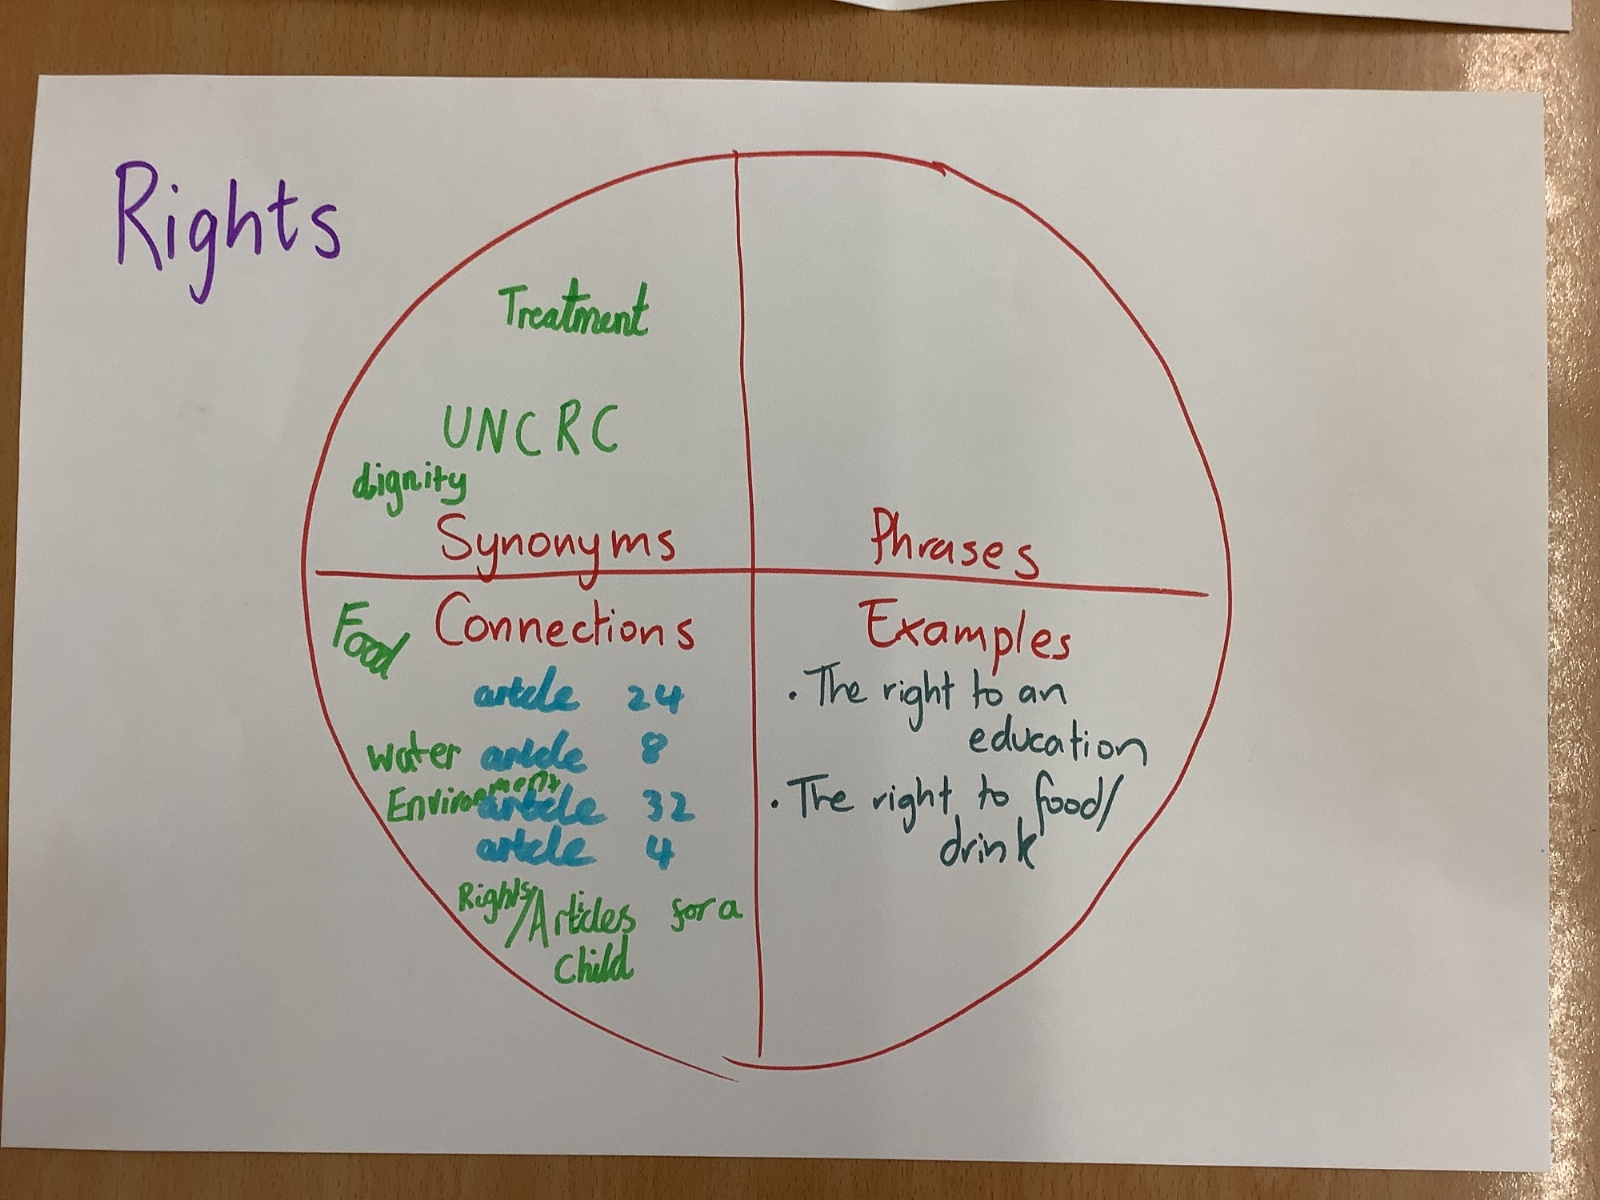 Rights
Treatment
UNCRC
dignity
Synonyms
Phrases
Food
Connections
article 24
water article 8
Environment article 32
article 4
Rights/Articles for a
Child
Examples
. The right to an
education
. The right to food/
drink